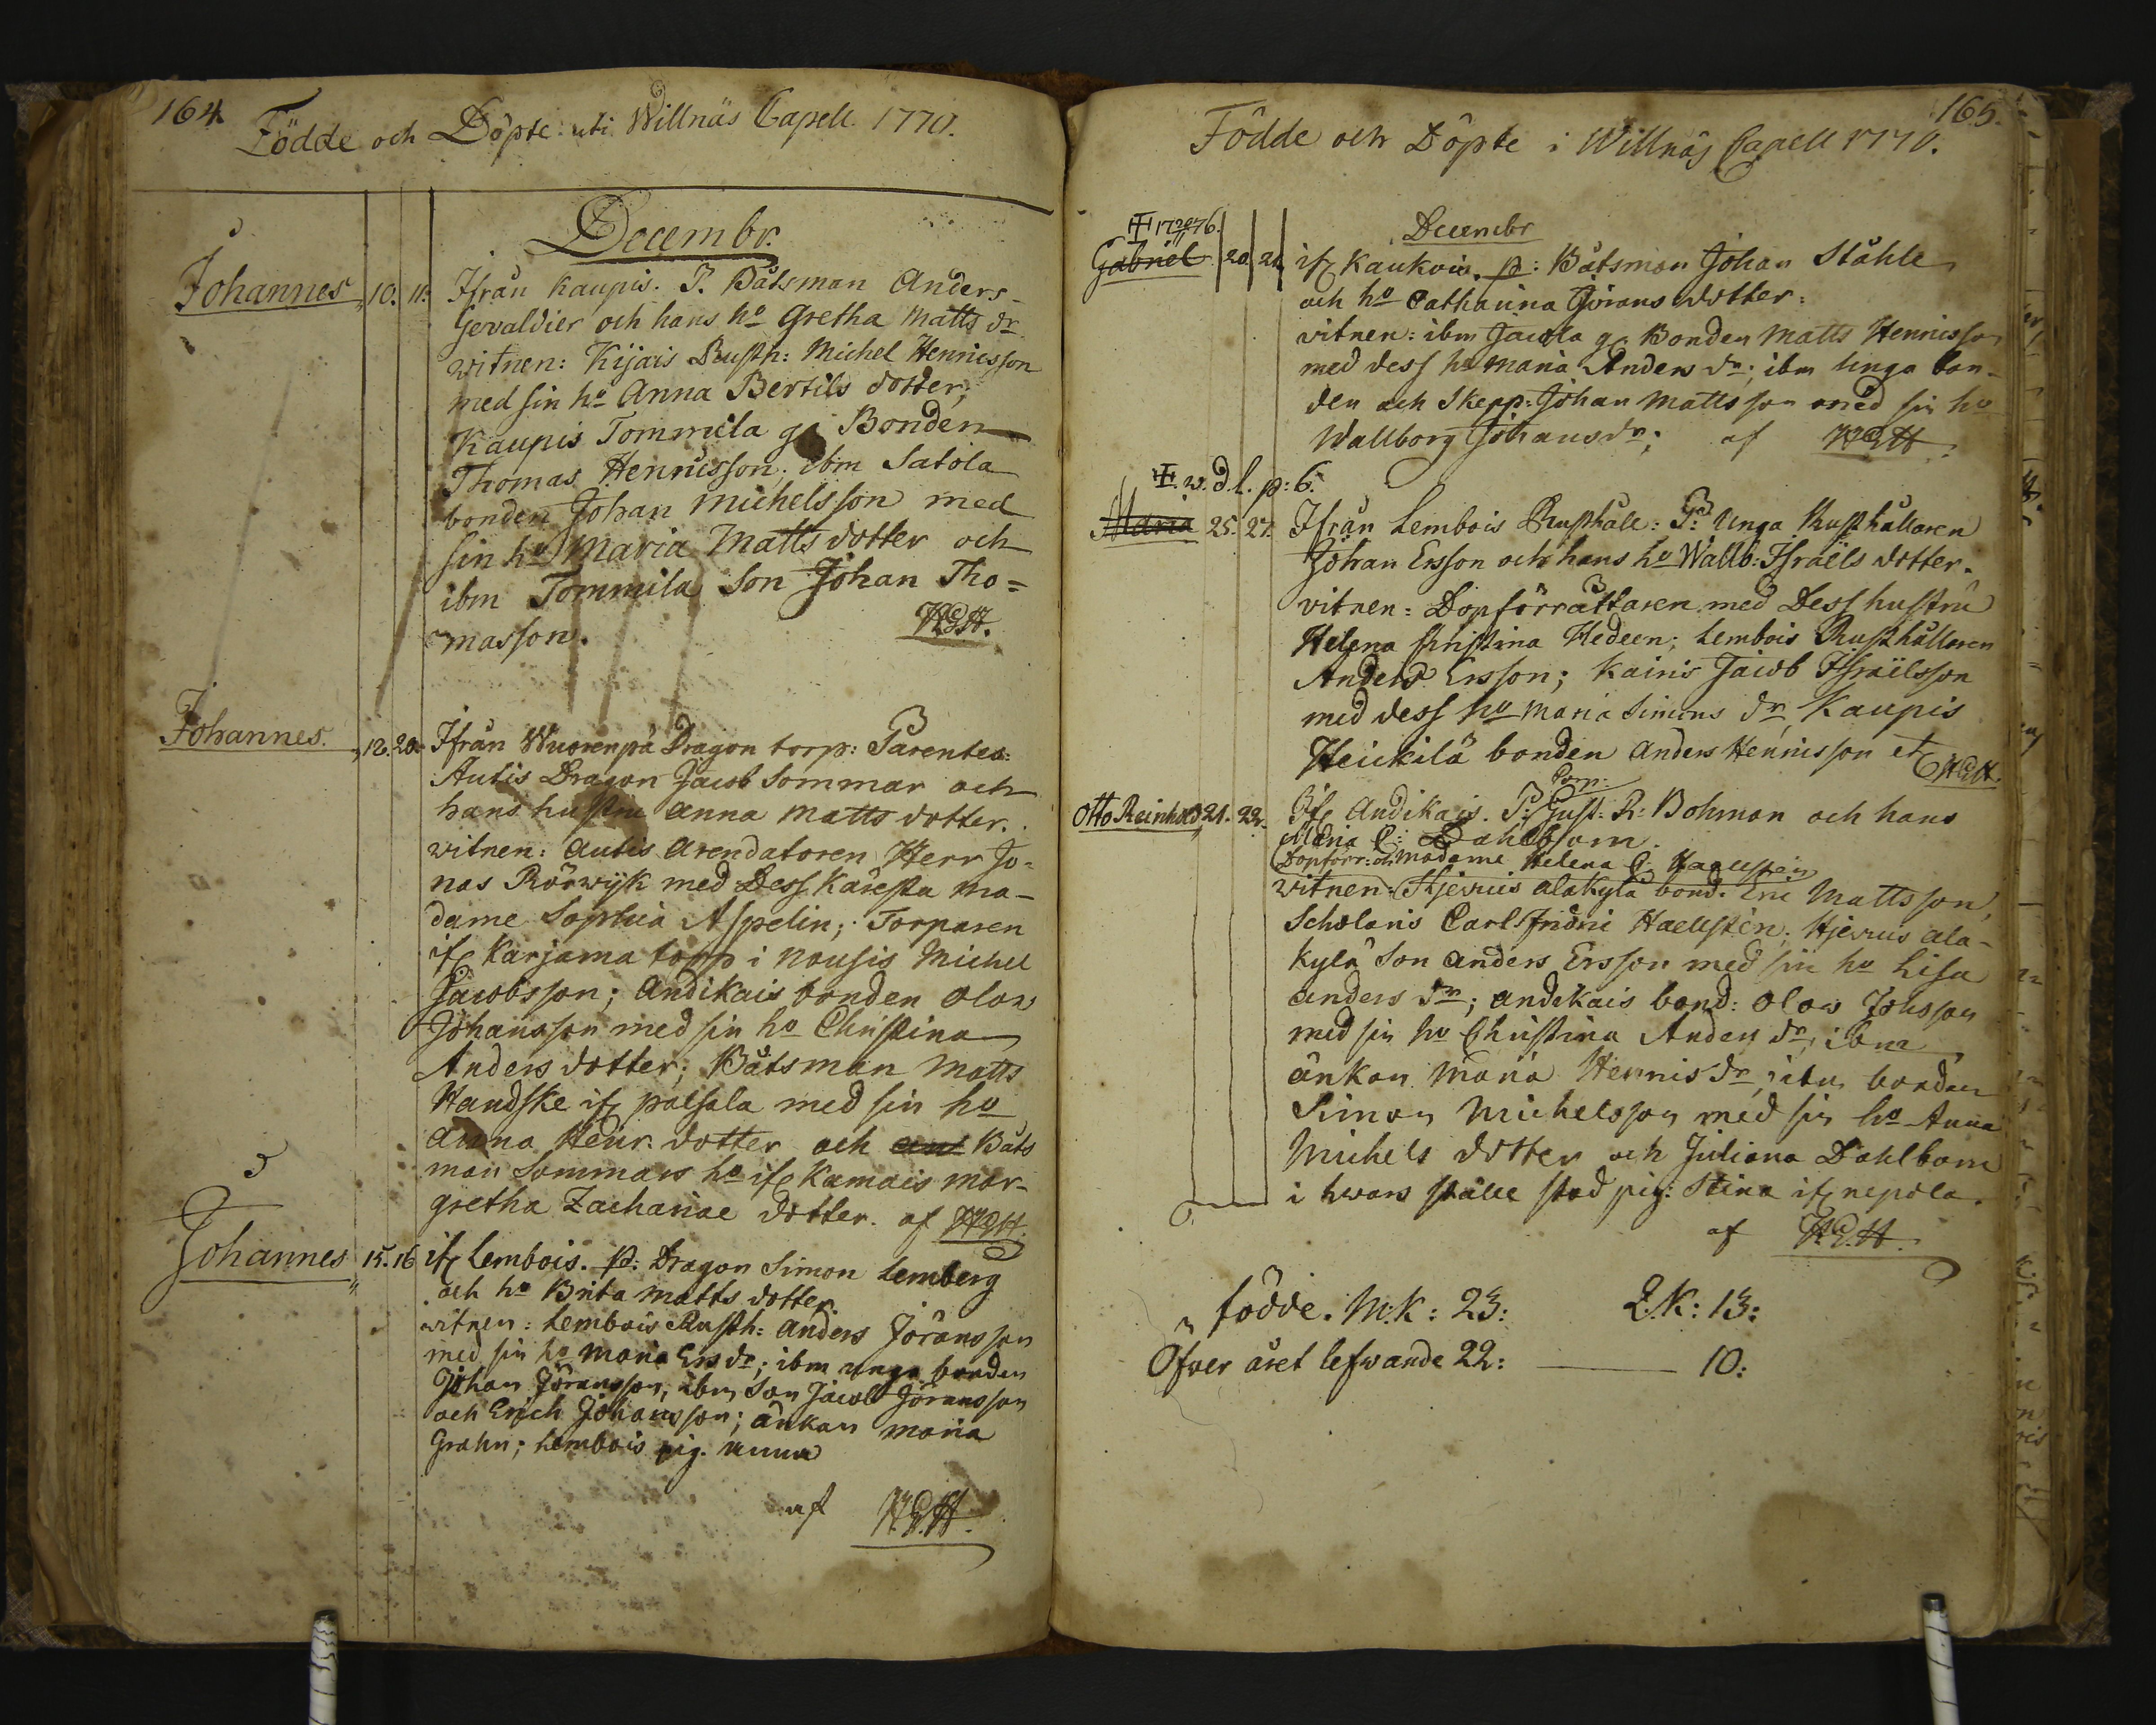 164.
Födde och Döpte uti Willnäs Capell 1770.
Decembr.
Johannes 10. 11. Ifrån Kaupis. P. Båtsman Anders
Gevaldier och hans ho Gretha Matts dr
witnen: Kijais Rusth: Michel Henricsson
med sin ho Anna Bertils dotter;
Kaupis Tommila ga Bonden
Thomas Henricsson; ibm Satola
bonden Johan Michelsson med
sin ho Maria Matts dotter och
ibm Tommila Son Johan Tho=
masson.
Johannes. 12. 20. Ifrån Wuorenpä Dragon torp: Parentes:
Autis Dragon Jacob Sommar och
hans hustru Anna Matts dotter.
witnen: Autis Arendatoren Herr Jo-
nas Rörwijk med Dess Käresta Ma-
dame Sophia Aspelin; Torparen
if Karjama torp i Nousis Michel
Jacobsson; Andikais bonden Olow
Johansson med sin ho Christina
Anders dotter; Båtsman Matts
Handske if palsala med sin ho
Anna Henr. dotter och Båts
man Sommars ho if Kamais Mar-
gretha Zachariae dotter. af
Johannes 15. 16 if Lembois. p: Dragon Simon Lemberg
och ho Brita Matts dotter.
witnen: Lembois Rusth: Anders Jöransson
med sin ho Maria Ers dr; ibm unga bonden
Johan Jöransson, ibm Son Jacob Jöransson
och Erich Johansson; änkan Maria
Grahn; Lembois pig. Anna
af
165.
Födde och Döpte i Willnäs Capell 1770.
Decembr
Gabriel 20. 21. if Kaukois. p: Båtsman Johan Ståhle
och ho Catharina Jörans dotter:
vitnen: ibm Jacola ga Bonden Matts Henricsson
med dess ho Maria Anders dr; ibm unga bon-
den och Skepp: Johan Mattsson med sin ho
Wallborg Johans dr; af
w. d. l. p: 6.
Maria 25. 27. Ifrån Lembois Rusthåll: P: Unga Rusthållaren
Johan Ersson och hans ho Wallb: Israëls dotter.
vitnen: Dopförrättaren med Dess hustru
Helena Christina Hedeen; Lembois Rusthållaren
Anders Ersson; Kairis Jacob Israëlsson
med dess ho Maria Simons dr, Kaupis
Heickilä bonden Anders Henricsson et
Otto Reinhold 21. 22. If Andikais. P: Gust: R: Bohman och hans
Maria C: Dahlbom.
Dopförr: och Madame Helena C: Haellstén
witnen: Hjervis alakylä bond: Eric Mattsson,
Scholaris Carl Haellstén; Hjervis ala-
kylä Son Anders Ersson med sin ho Lisa
Anders dr; Andikais bond: Olow Johsson
med sin ho Christina Anders dr; ibm
änkan Maria Henrics dr; ibm bonden
Simon Michelsson med sin ho Anna
Michels dotter och Juliana Dahlbom
i hwars ställe stod pig: Stina if nepola.
af
födde. M.K: 23: Q.K: 13:
Öfver året lefwande 22: — 10: